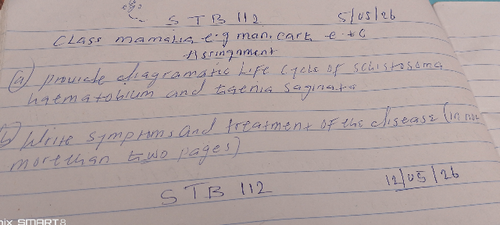 egg
STB 112 5/05/26
Class mamalia e.g man, cart e.t.c
Assingnment
(a) provide diagramatic Life Cycle of schistosoma
haematobium and taenia saginata
b) Write symptoms and treatment of the disease (in not
more than two pages)
STB 112 12/05/26
SMART 8